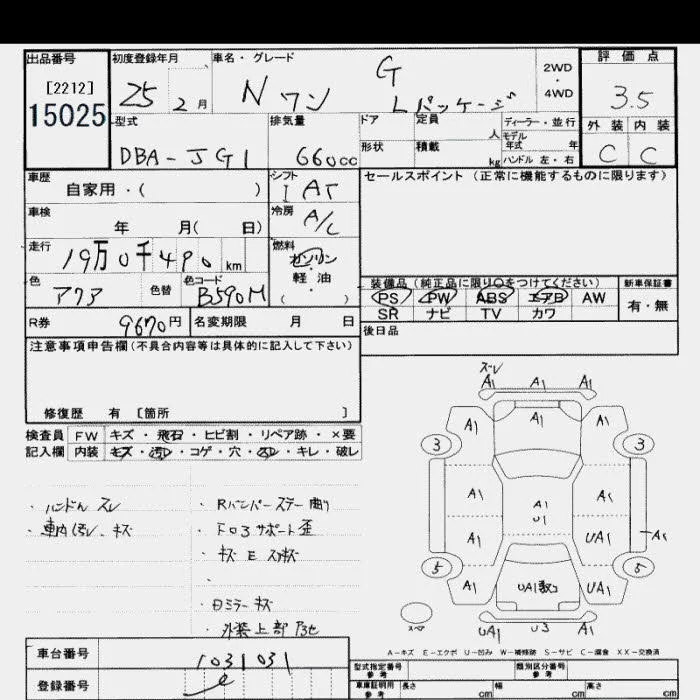 出品番号
[2212]
15025
初度登録年月
25 2月
車名・グレード
Nワン
G
Lパッケージ
2WD
・
4WD
評価点
3.5
外装 内装
C C
型式
DBA-JG1
排気量
660cc
ドア
形状
定員 人
積載 kg
ディーラー・並行
モデル
年式 年
ハンドル 左・右
車歴
自家用・( )
シフト
I AT
車検
年 月( 日)
冷房
A/C
走行
19万0千490km
燃料
ガソリン
軽・油
( )
色
アクア
色替
色コード
B590M
R券
9670円
名変期限 月 日
セールスポイント(正常に機能するものに限ります)
装備品(純正品に限り○をつけてください)
PS PW ABS エアB AW
SR ナビ TV カワ
新車保証書
有・無
後日品
注意事項申告欄(不具合内容等は具体的に記入して下さい)
修復歴 有 [箇所 ]
検査員 FW キズ・飛石・ヒビ割・リペア跡・×要
記入欄 内装 キズ・汚レ・コゲ・穴・スレ・キレ・破レ
・ハンドル スレ
・車内汚レ、キズ
・Rバンパーステー曲り
・ドロ3サポート歪
・キズ E
・
・日ミラーキズ
・外装上部
ズレ
A1 A1 A1
A1 A1 A1
3 3
A1 A1 A1
U1
A1 UA1 A1
5 5
A1 UA1数コ UA1
スペア
UA1 U3 A1
A-キズ E-エクボ U-凹み W-補修跡 S-サビ C-腐食 XX-交換済
車台番号
1031031
登録番号
型式指定番号
参考
類別区分番号
参考
車庫証明用
参考
長さ cm
幅 cm
高さ cm